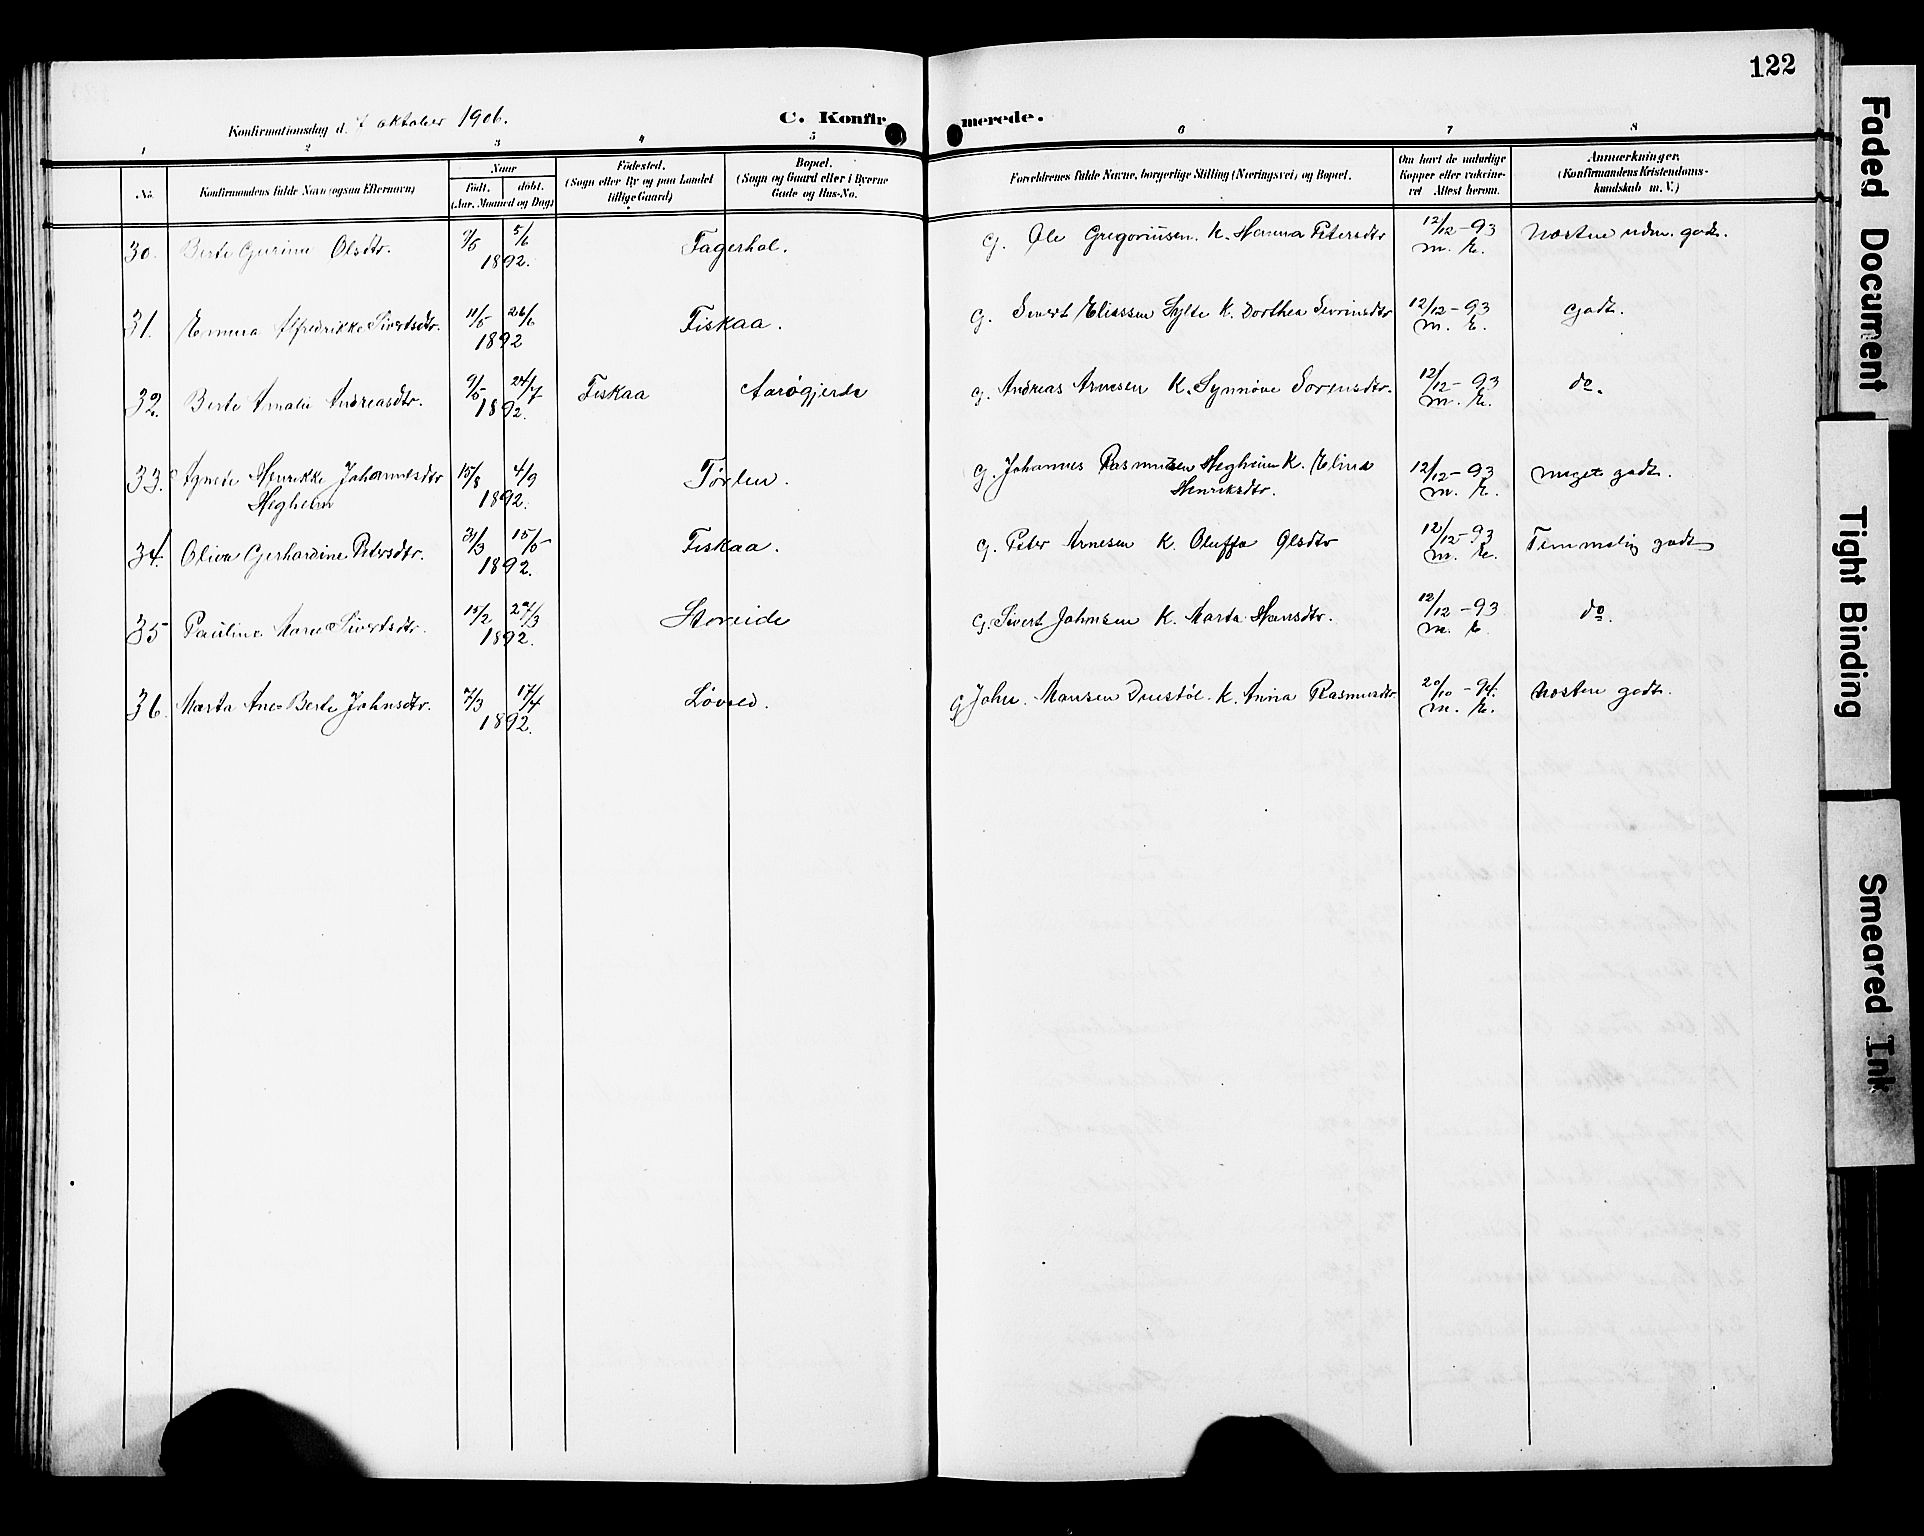 122
Konfirmationsdag d. 7 oktober 1906.
C. Konfirmerede.
1 2 3 4 5 6 7 8
No.
Konfirmandens fulde Navn (ogsaa Efternavn)
Naar
født. døbt.
(Aar, Maaned og Dag)
Fødested.
(Sogn eller By og paa Landet
tillige Gaard)
Bopæl.
(Sogn og Gaard eller i Byerne
Gade og Hus-No.
Forældrenes fulde Navne, borgerlige Stilling (Næringsvei) og Bopæl.
Om havt de naturlige
Kopper eller vakcine-
ret Attest herom.
Anmærkninger.
(Konfirmandens Kristendoms-
kundskab m. V.)
30. Berte Gurine Olsdtr. 7/5 5/6 Fagerhol. G. Ole Gregoriusen. K. Hanna Petersdtr 12/12-93 Næsten udm. godt.
1892. m. E.
31. Emma Alfredrikke Sivertsdtr. 11/5 26/6 Fiskaa. G. Sivert Eliassen Sylte K. Dorthea Sevrinsdtr 12/12-93 Godt.
1892 m. E.
32. Berte Amalie Andreasdtr. 9/5 24/7 Fiskaa Aarøgjerde G. Andreas Arnesen K. Synnøve Sorensdtr. 12/12-93 do.
1892. m. E.
33. Agnete Henrikke Johannesdtr 15/8 4/9 Tørlen. G. Johannes Rasmussen Hegheim K. Elina 12/12-93 Meget godt.
Hegheim 1892. Henriksdtr. m. E.
34. Oliva Gerhardine Petersdtr. 31/3 15/5 Fiskaa. G. Peter Arnesen K. Oluffa Olsdtr 12/12-93 Temmelig godt
1892. m. E.
35 Pauline Marie Sivertsdtr. 15/2 27/3 Storeide G. Sivert Johnsen K. Marta Hansdtr. 12/12-93 do.
1892. m. E.
36. Marta Ane Berte Johnsdtr. 7/3 17/4 Løvold. G John Monsen K. Anna Rasmusdtr 20/10-94. Næsten godt.
1892. m. E.
Faded Document
Tight Binding
Smeared Ink